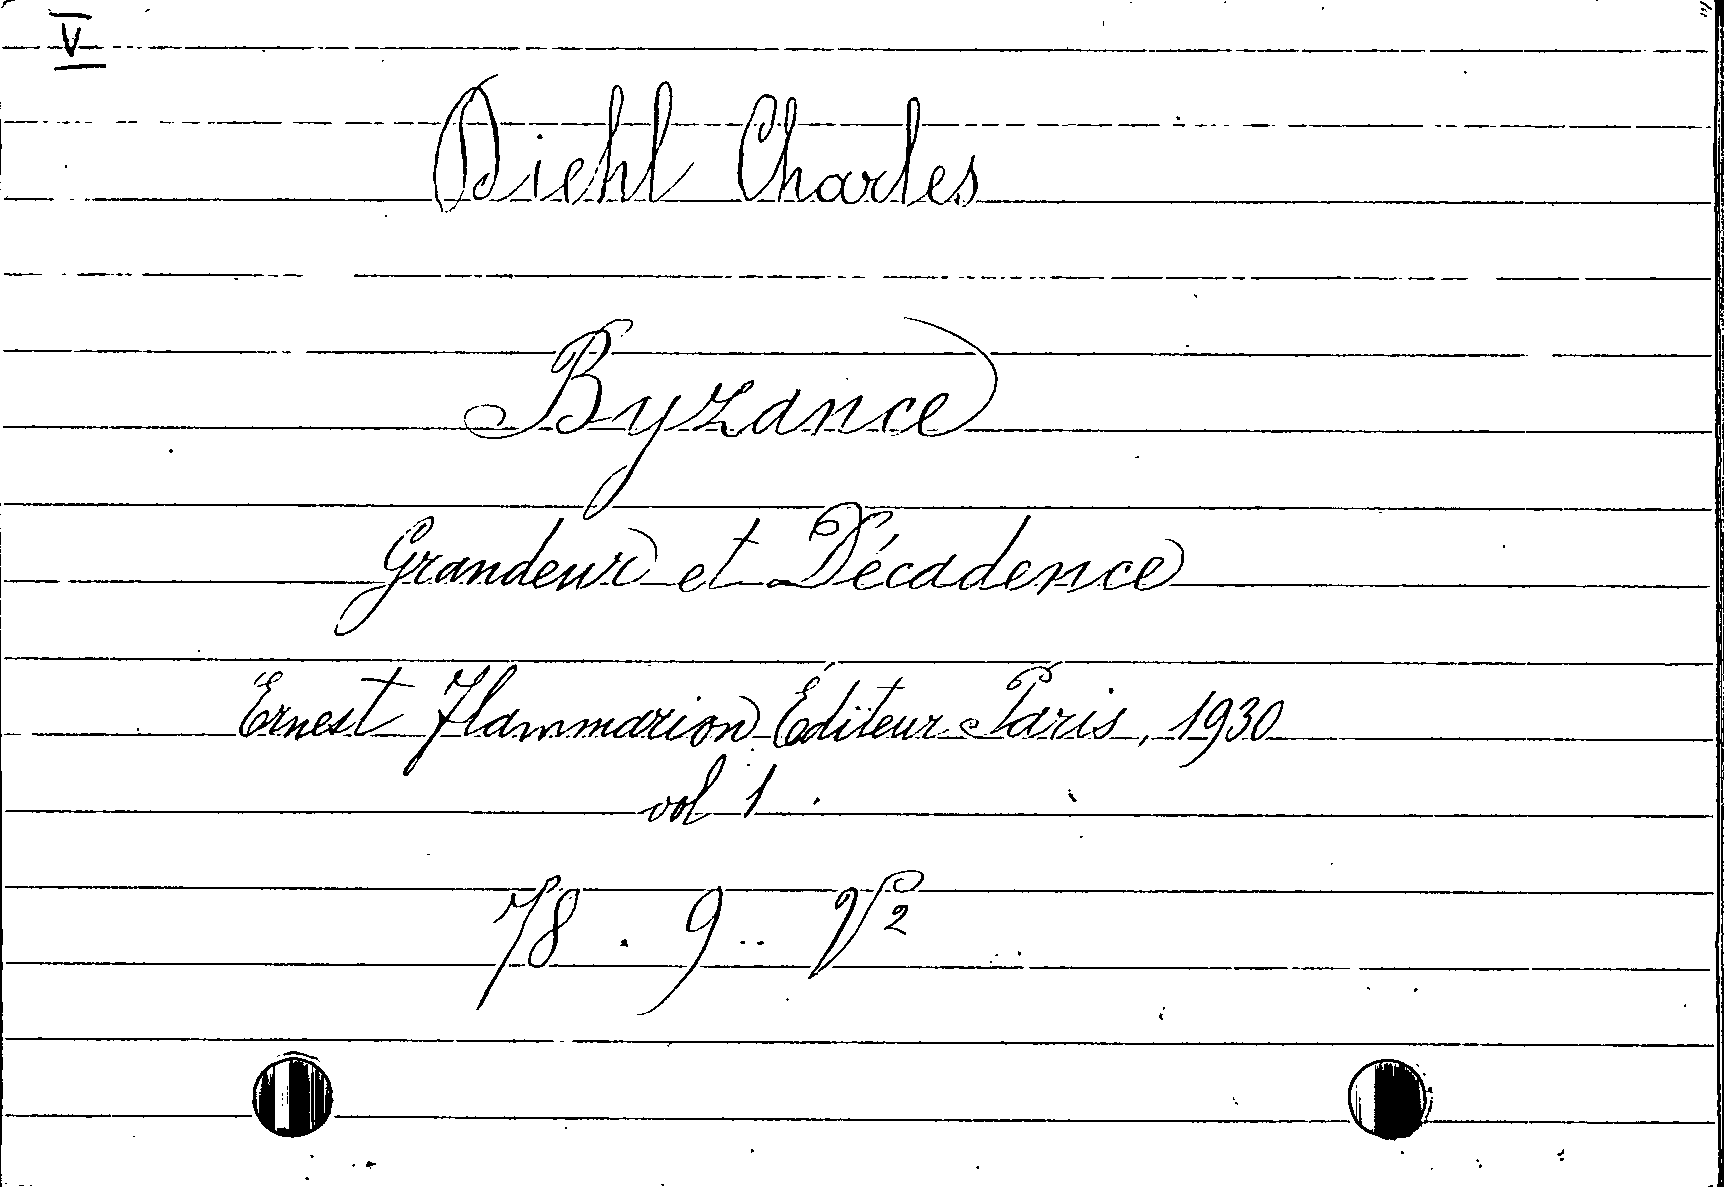 V
Diehl Charles
Byzance
Grandeur et Décadence
Ernest Flammarion Éditeur Paris, 1930
vol 1
78 . 9 .. V2